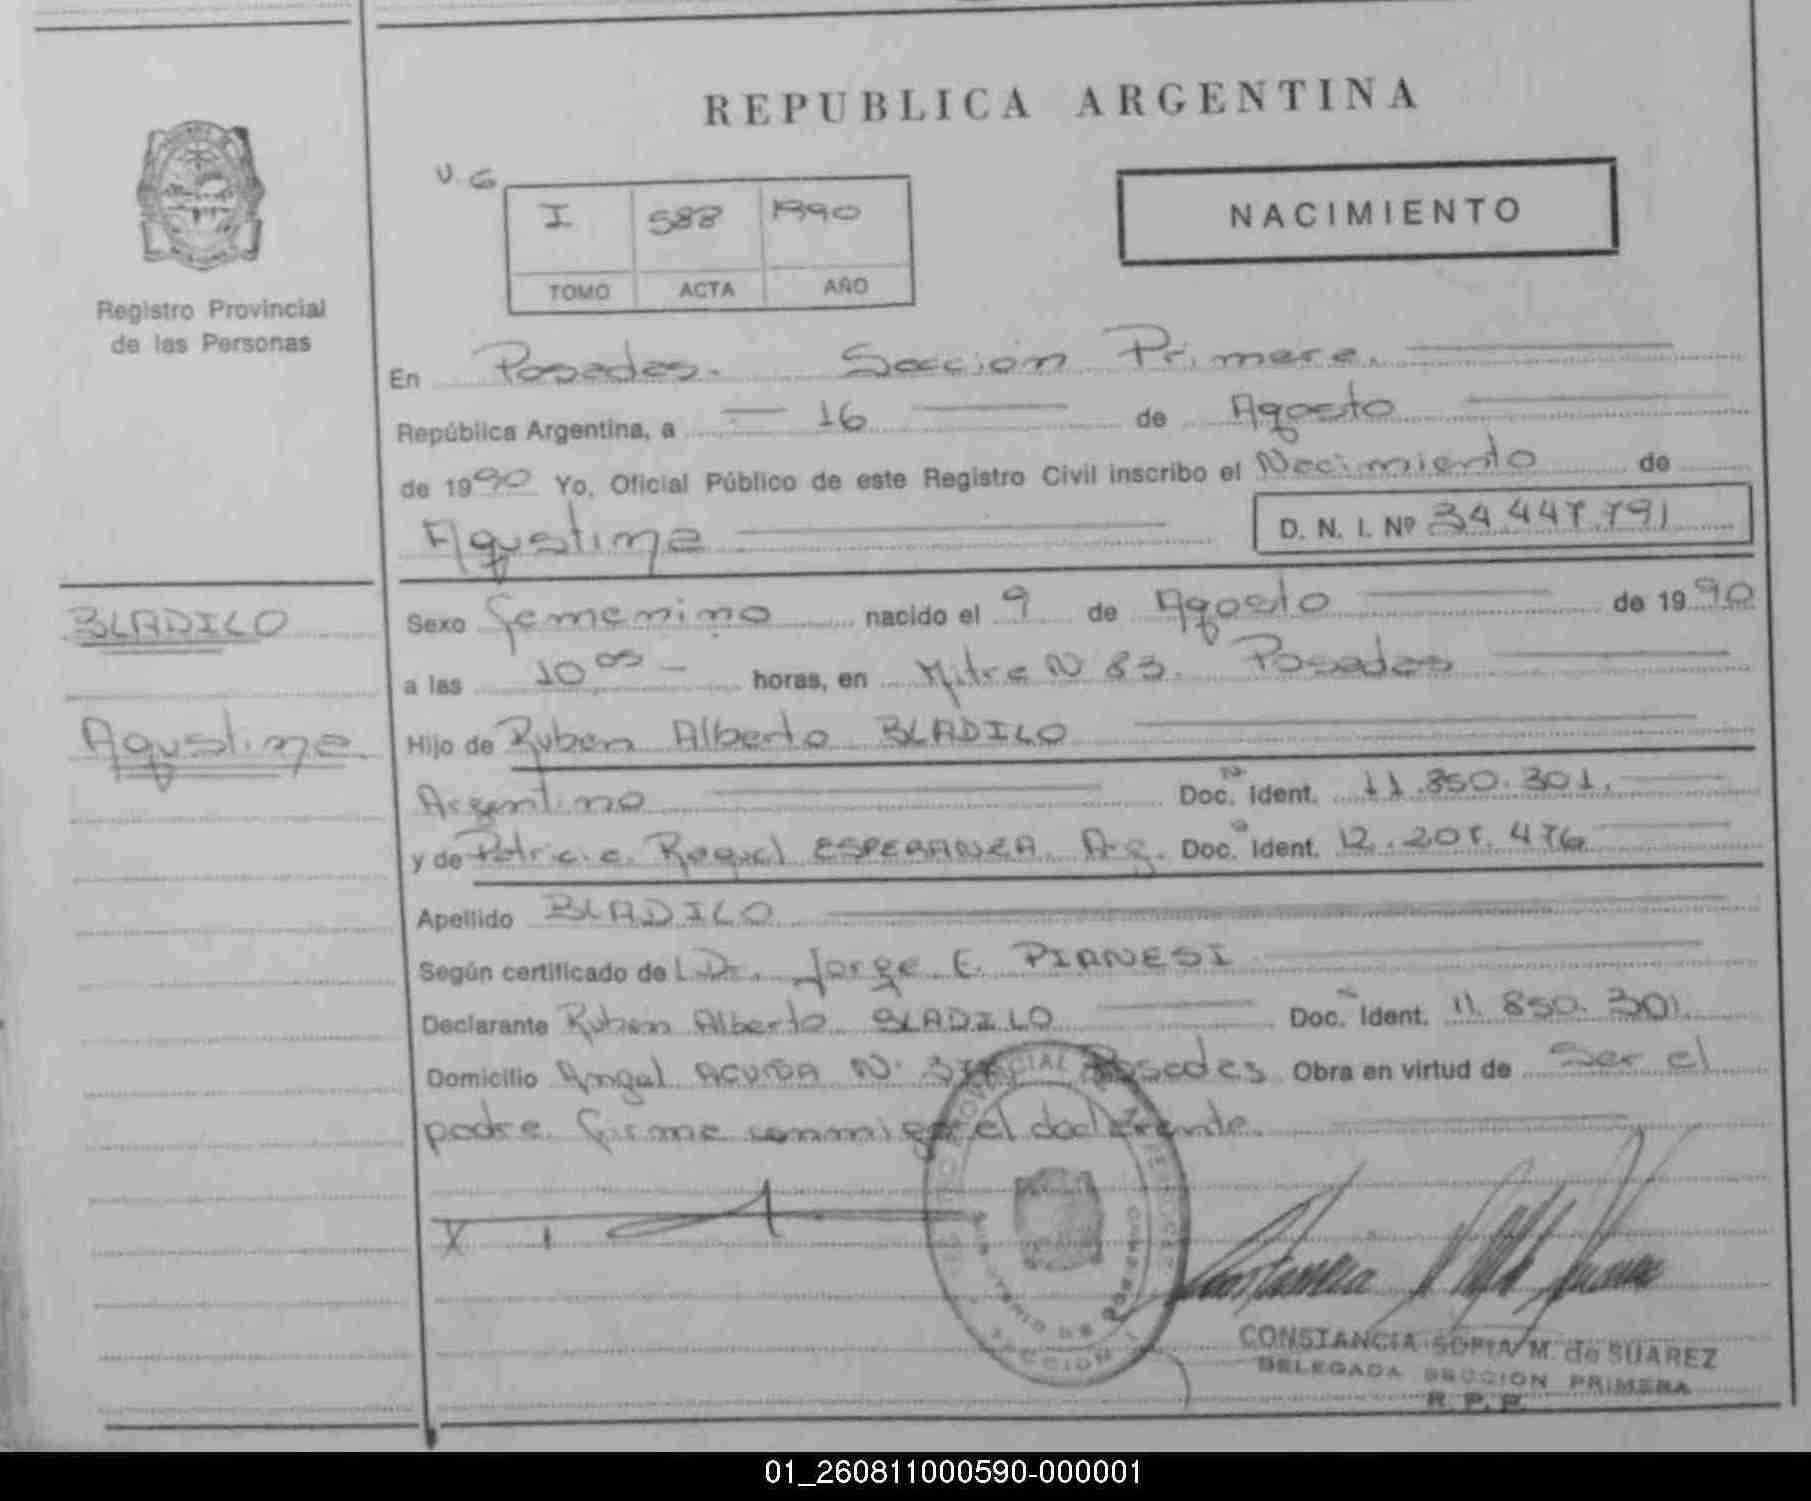 REPUBLICA ARGENTINA
Registro Provincial
de las Personas
V. G
I 588 1990
TOMO ACTA AÑO
NACIMIENTO
En Posadas. Sección Primera.
República Argentina, a 16 de Agosto
de 1990 Yo, Oficial Público de este Registro Civil inscribo el Nacimiento de
Agustina D. N. I. Nº 34.447.791
BLADILO
Agustina
Sexo femenino nacido el 9 de Agosto de 1990
a las 10 05 horas, en Mitre N 83. Posadas
Hijo de Ruben Alberto BLADILO
Argentino Doc. Ident. 11.850.301.
y de Patricia Raquel ESPERANZA Arg. Doc. Ident. 12.207.476
Apellido BLADILO
Según certificado de L Dr. Jorge E. PIANESI
Declarante Ruben Alberto BLADILO Doc. Ident. 11.850.301
Domicilio Angel ACUÑA N. Posadas Obra en virtud de Ser el
padre. firma conmigo el declarante.
SECCION
CONSTANCIA SOFIA M. de SUAREZ
DELEGADA SECCION PRIMERA
R. P. P.
01_260811000590-000001